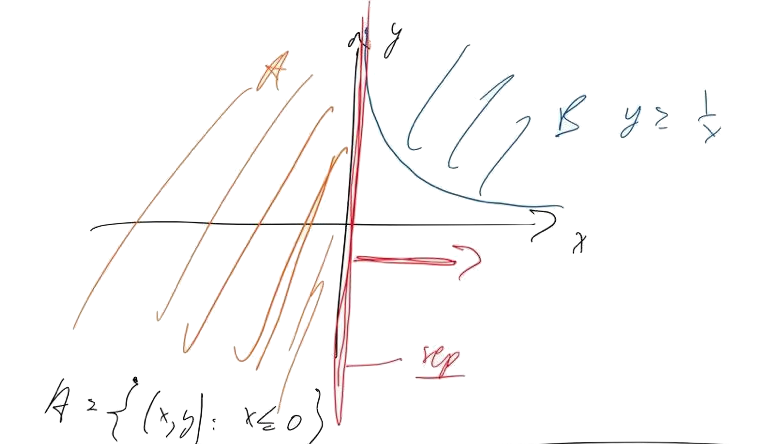 A
y
B y ≥ 1/x
x
sep
A = {(x,y): x ≤ 0}